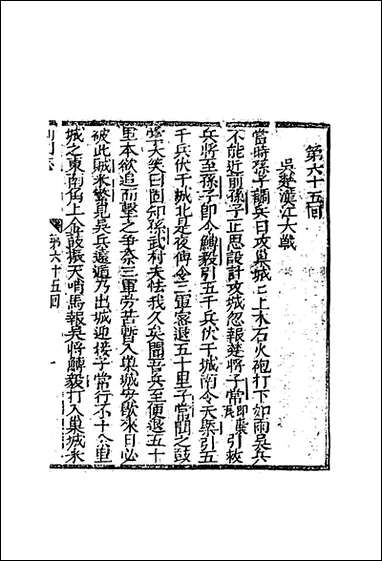 第六十五回
吳楚漢江大戰
當時孫子調兵日攻巢城城上木石火砲打下如雨吳兵
不能近前孫子正思設計攻城忽報楚將子當即囊瓦引救
兵將至孫子即令鱄毅引五千兵伏于城南令夫槩引五
千兵伏于城北是夜傳令三軍密退五十里子當聞之鼓
掌大笑曰固知孫武村夫怯我久矣聞吾兵至便退五十
里本欲追而擊之爭奈三軍勞苦暫入巢城安歇來日必
破此賊米繁見吳兵遠遁乃出城迎接子當行不十余里
城之東南角上金鼓振天哨馬報吳將鱄毅打入巢城米
列國志
第六十五回
一